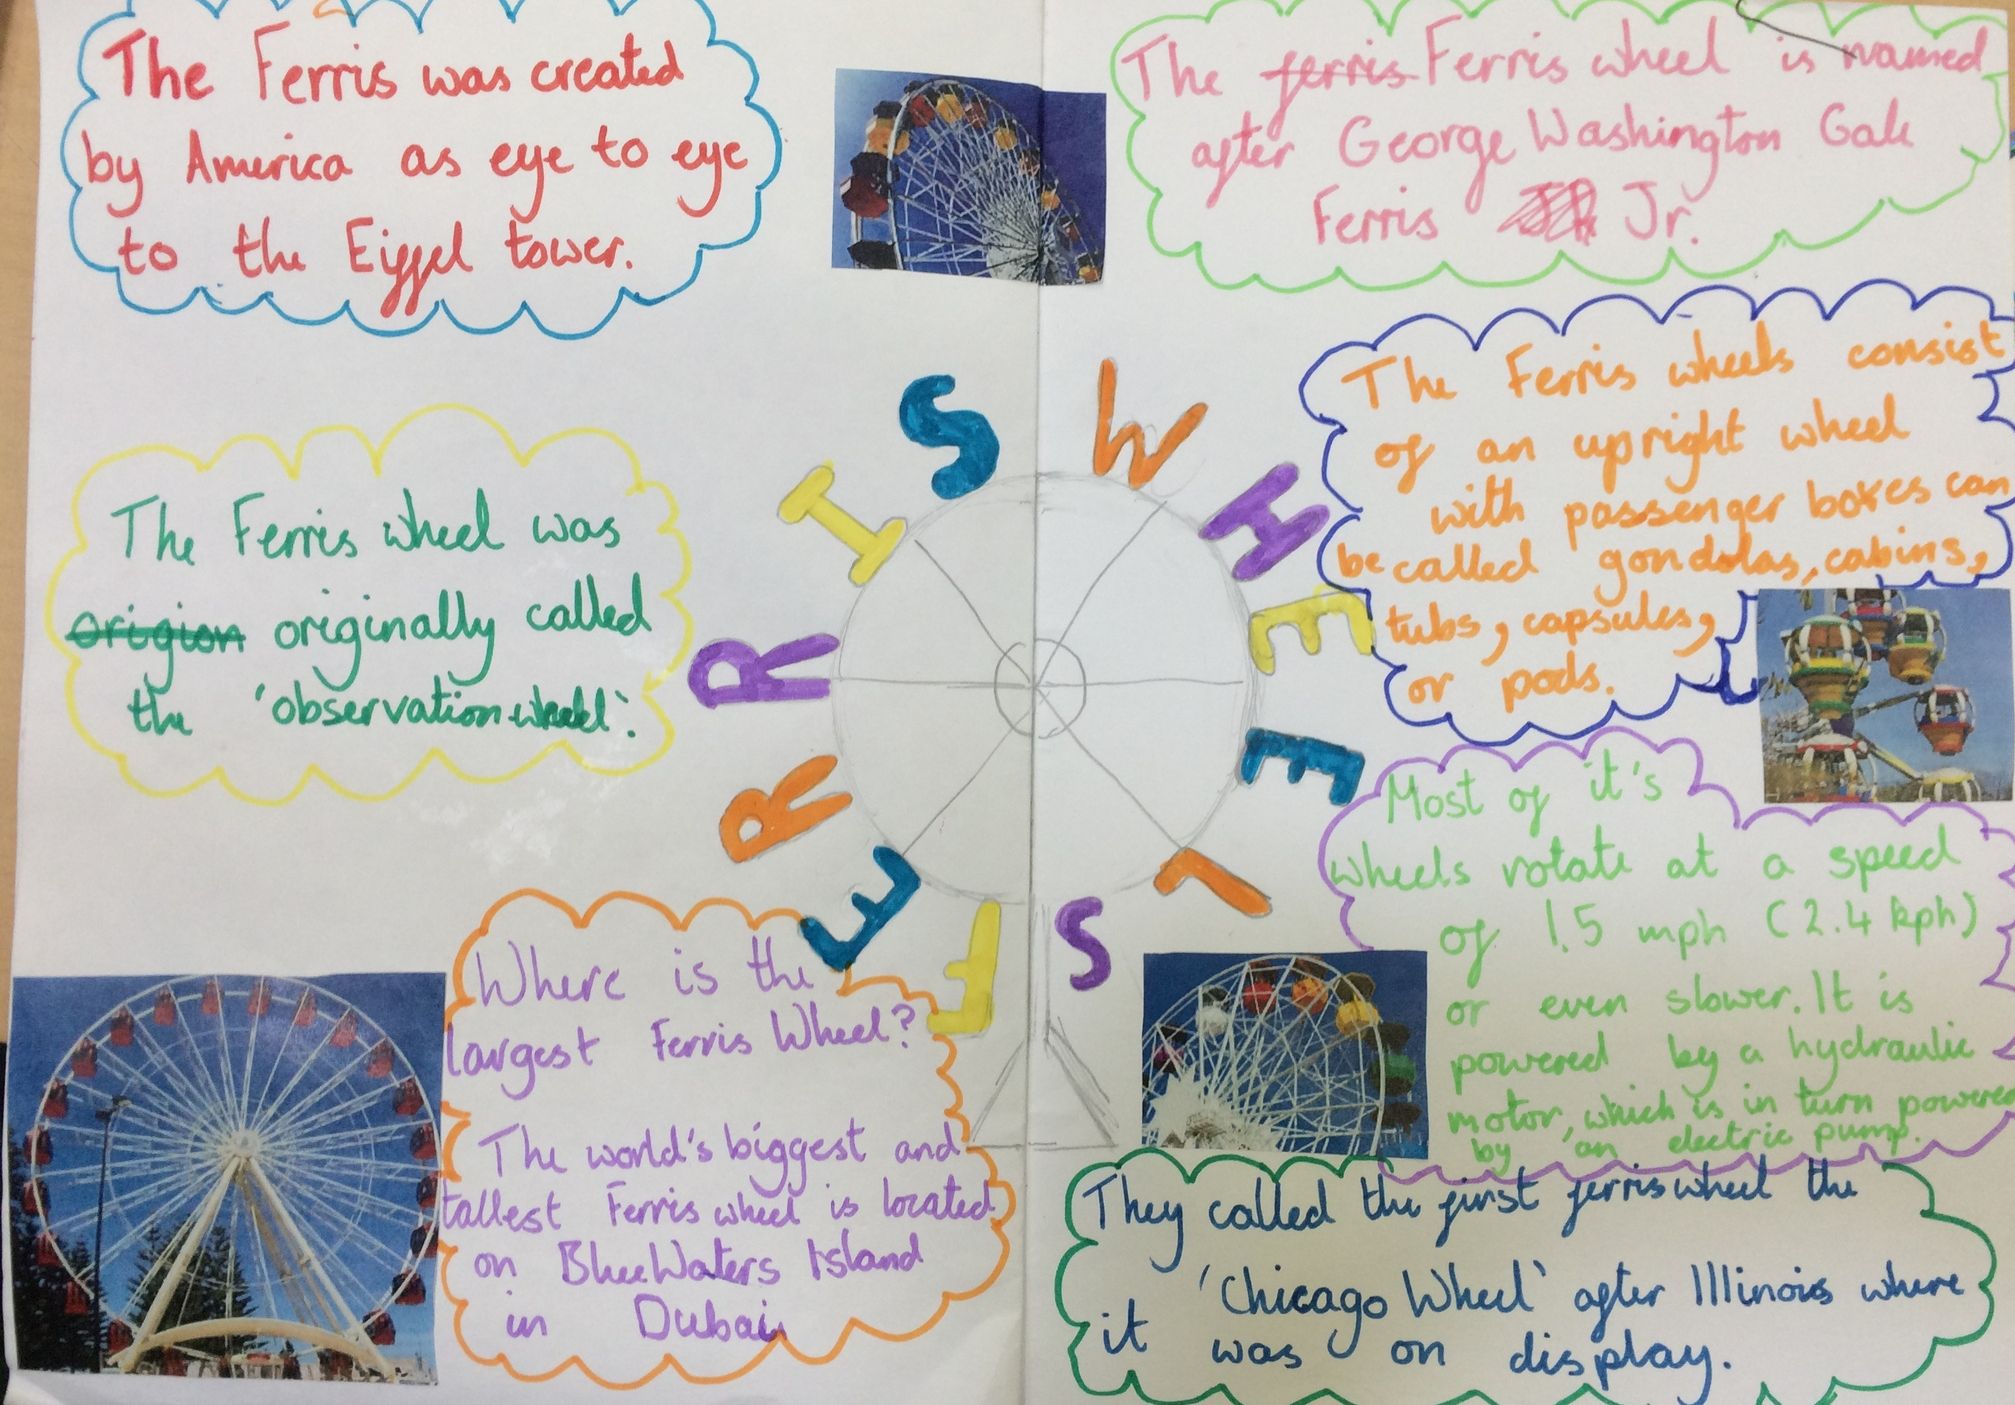 The Ferris was created
by America as eye to eye
to the Eiffel tower.
The ferris Ferris wheel is named
after George Washington Gale
Ferris Jr.
The Ferris wheel was
origion originally called
the 'observation wheel'.
FERRIS WHEELS
The Ferris wheels consist
of an upright wheel
with passenger boxes can
be called gondolas, cabins,
tubs, capsules,
or pods.
Most of it's
wheels rotate at a speed
of 1.5 mph (2.4 kph)
or even slower. It is
powered by a hydraulic
motor, which is in turn powered
by an electric pump.
Where is the
largest Ferris Wheel?
The world's biggest and
tallest Ferris wheel is located
on BlueWaters Island
in Dubai
They called the first ferris wheel the
'Chicago Wheel' after Illinois where
it was on display.